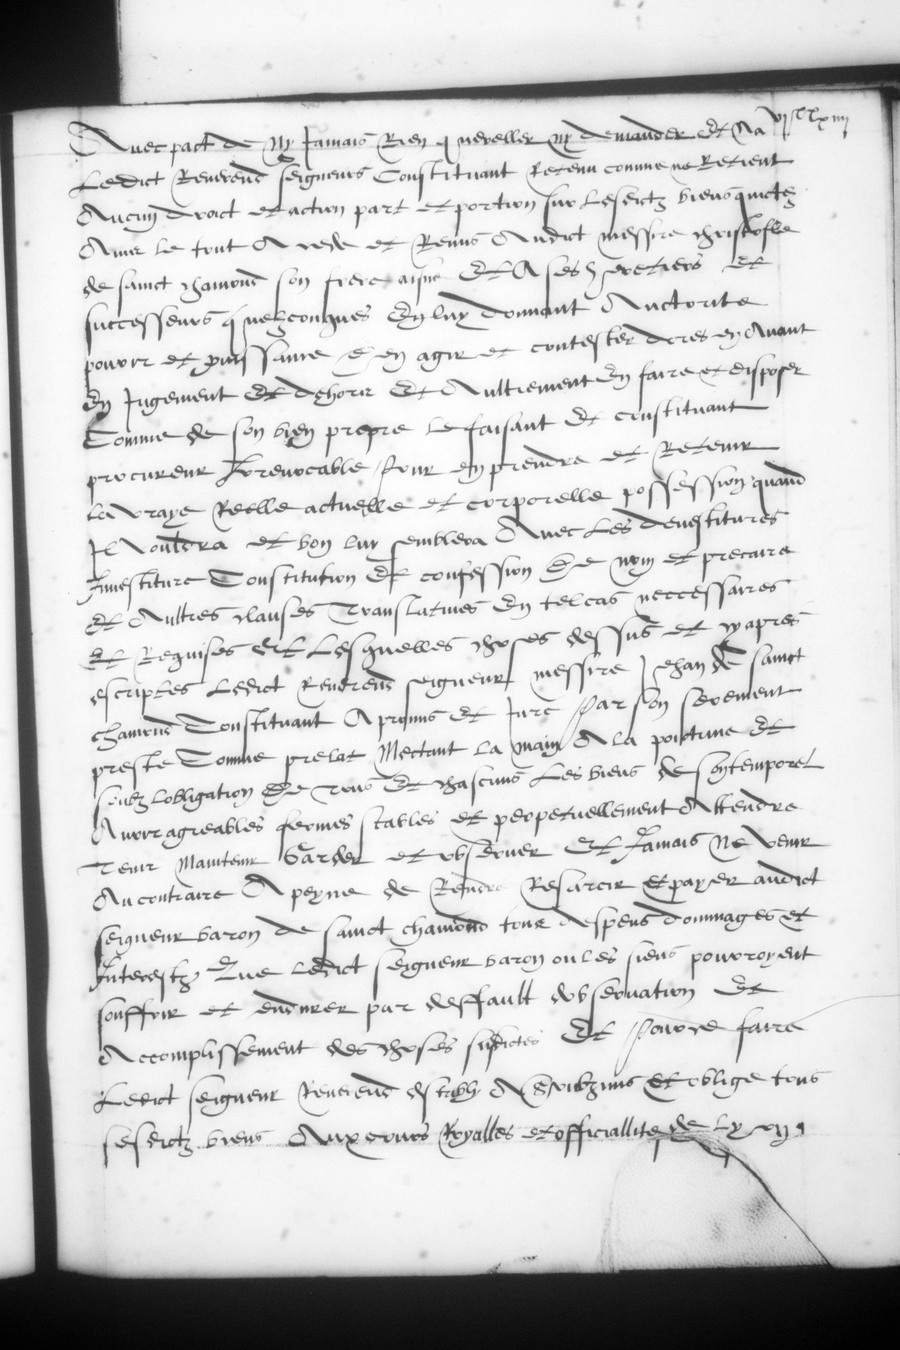 vjc lxiiij
Avec pact de ny Jamais Rien quereller ny demander Et Na
Ledict Reverend seigneur Constituant Retenu comme ne Retient
Aucun droict et action part et portion sur Lesdictz biens quictez
Ains le tout A cede et Remis Audict messire christofle
de sainct chamond son frere aisne Et A ses heretiers Et
successeurs quelzconques En luy donnant Auctorite
pouvoir et puissance D'en agir et contester dores en Avant
En Jugement Et dehors Et Aultrement En faire et disposer
Comme de son bien propre Le faisant Et constituant
procureur Irrevocable Pour en prendre et Retenir
La vraye Reelle actuelle et corporelle possession quand
Il Vouldra et bon luy semblera Avec Les devestitures
Investiture Constitution Et confession De nom et precaire
Et Aultres clauses Translatives En tel cas neccessaires
Et Requises Et Lesquelles choses dessus et cy apres
escriptes Ledict Reverend seigneur messire Jehan de sainct
chamond Constituant A promis Et Jure Par son serement
preste Comme prelat Mectant la main A la poictrine Et
soubz lobligation De tous Et chascuns Les biens de son temporel
Avoir agreables fermes stables et perpetuellement Attendre
Tenir Maintenir Garder et observer Et Jamais Ne Venir
Au contraire A peyne de Rendre Resarcir Et payer audict
seigneur baron de sainct chamond tous despens dommages et
Interestz Que ledict seigneur baron ou les siens pourroyent
souffrir et endurer par deffault dobservation Et
Accomplissement des choses susdictes Et Pour ce faire
Ledict seigneur Reverend establi A soubzmis Et oblige tous
sesdictz biens Aux cours Royalles et officiallite de Lyon